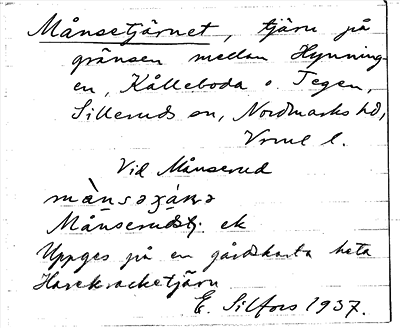 Månsetjärnet, tjärn på
gränsen mellan Hynning-
en, Kålleboda o. Tegen,
Silleruds sn, Nordmarks hd,
Vrml l.
Vid Månserud
Månserudstj. ek
Uppges på en gårdskarta heta
Harekracketjärn
E. Silfors 1937.